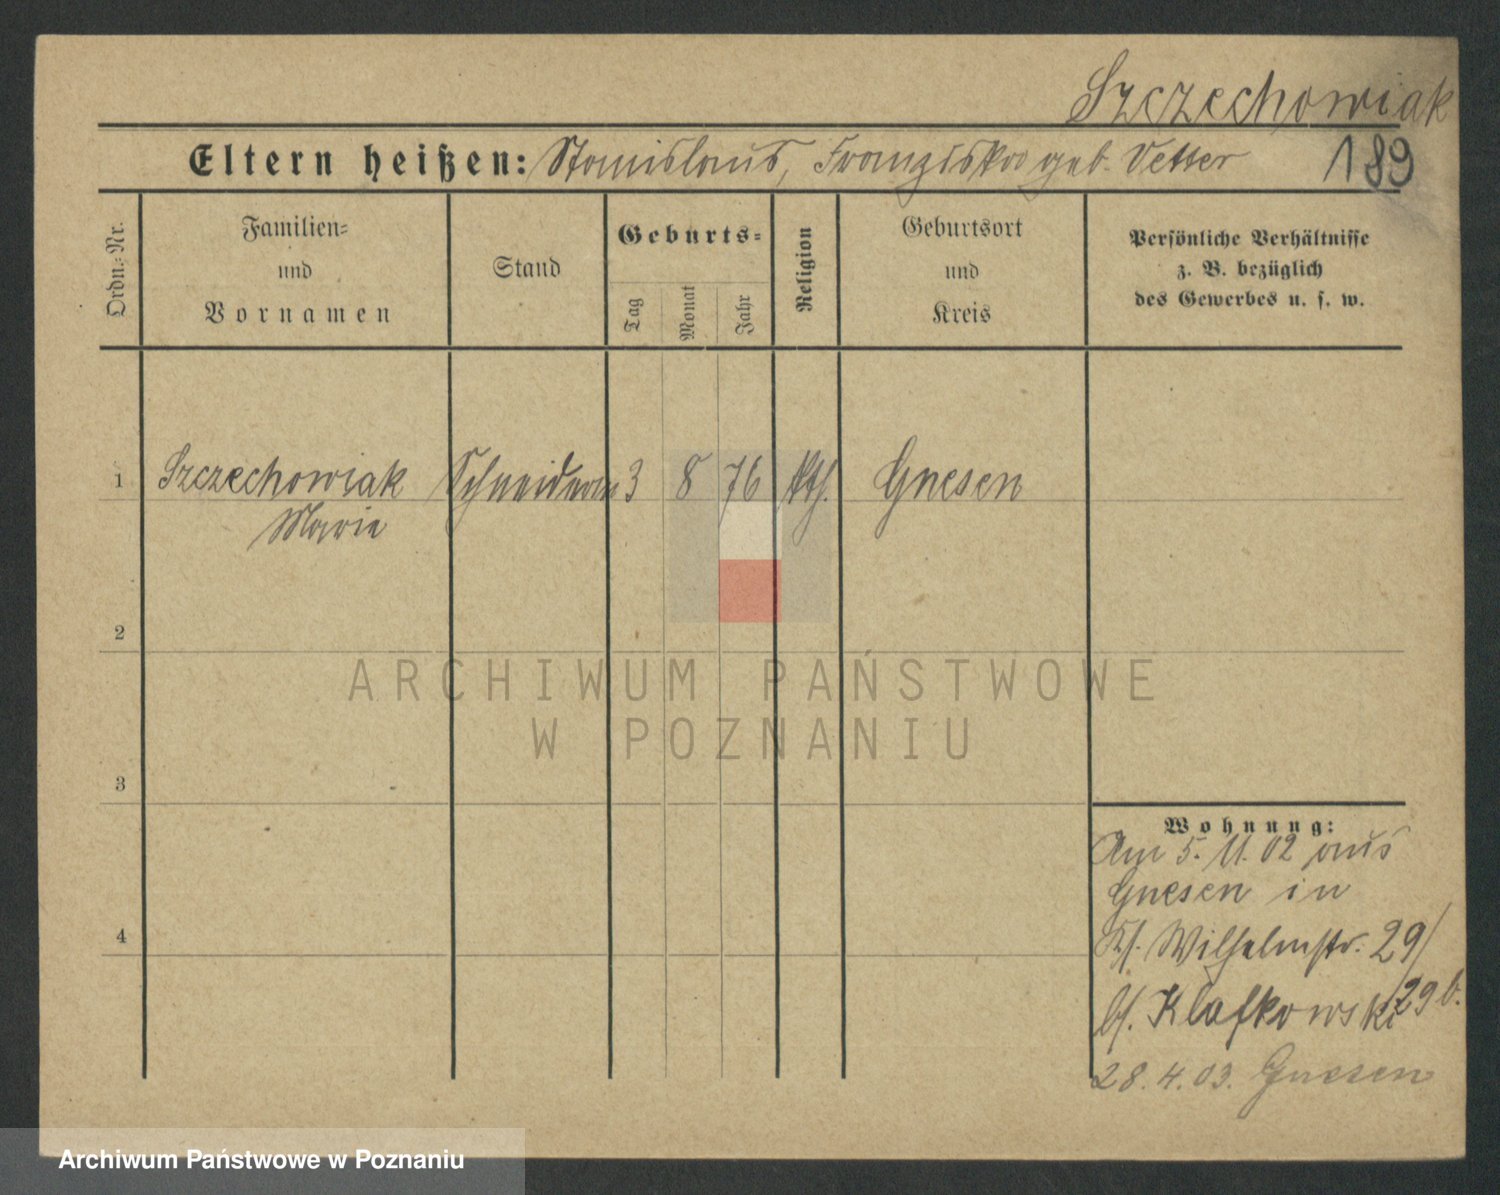 Szczechowiak
Eltern heißen: Stanislaus, Franziska geb. Vetter 189
Ordn.-Nr.
Familien-
und
Vornamen
Stand
Geburts-
Tag
Monat
Jahr
Religion
Geburtsort
und
Kreis
Persönliche Verhältnisse
z. B. bezüglich
des Gewerbes u. s. w.
1 Szczechowiak Schneiderin 3 8 76 kth. Gnesen
Marie
2
3
4
Wohnung:
Am 5. 11. 02 aus
Gnesen in
Wilhelmstr. 29/
29b.
Klafkowski
28. 4. 03. Gnesen
ARCHIWUM PAŃSTWOWE
W POZNANIU
Archiwum Państwowe w Poznaniu